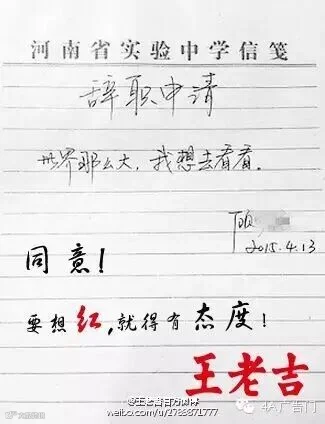 河南省实验中学信笺
辞职申请
世界那么大,我想去看看。
顾
2015.4.13
同意!
要想红,就得有态度!
王老吉
@王老吉官方微博
weibo.com/u/2786871777
4A广告门